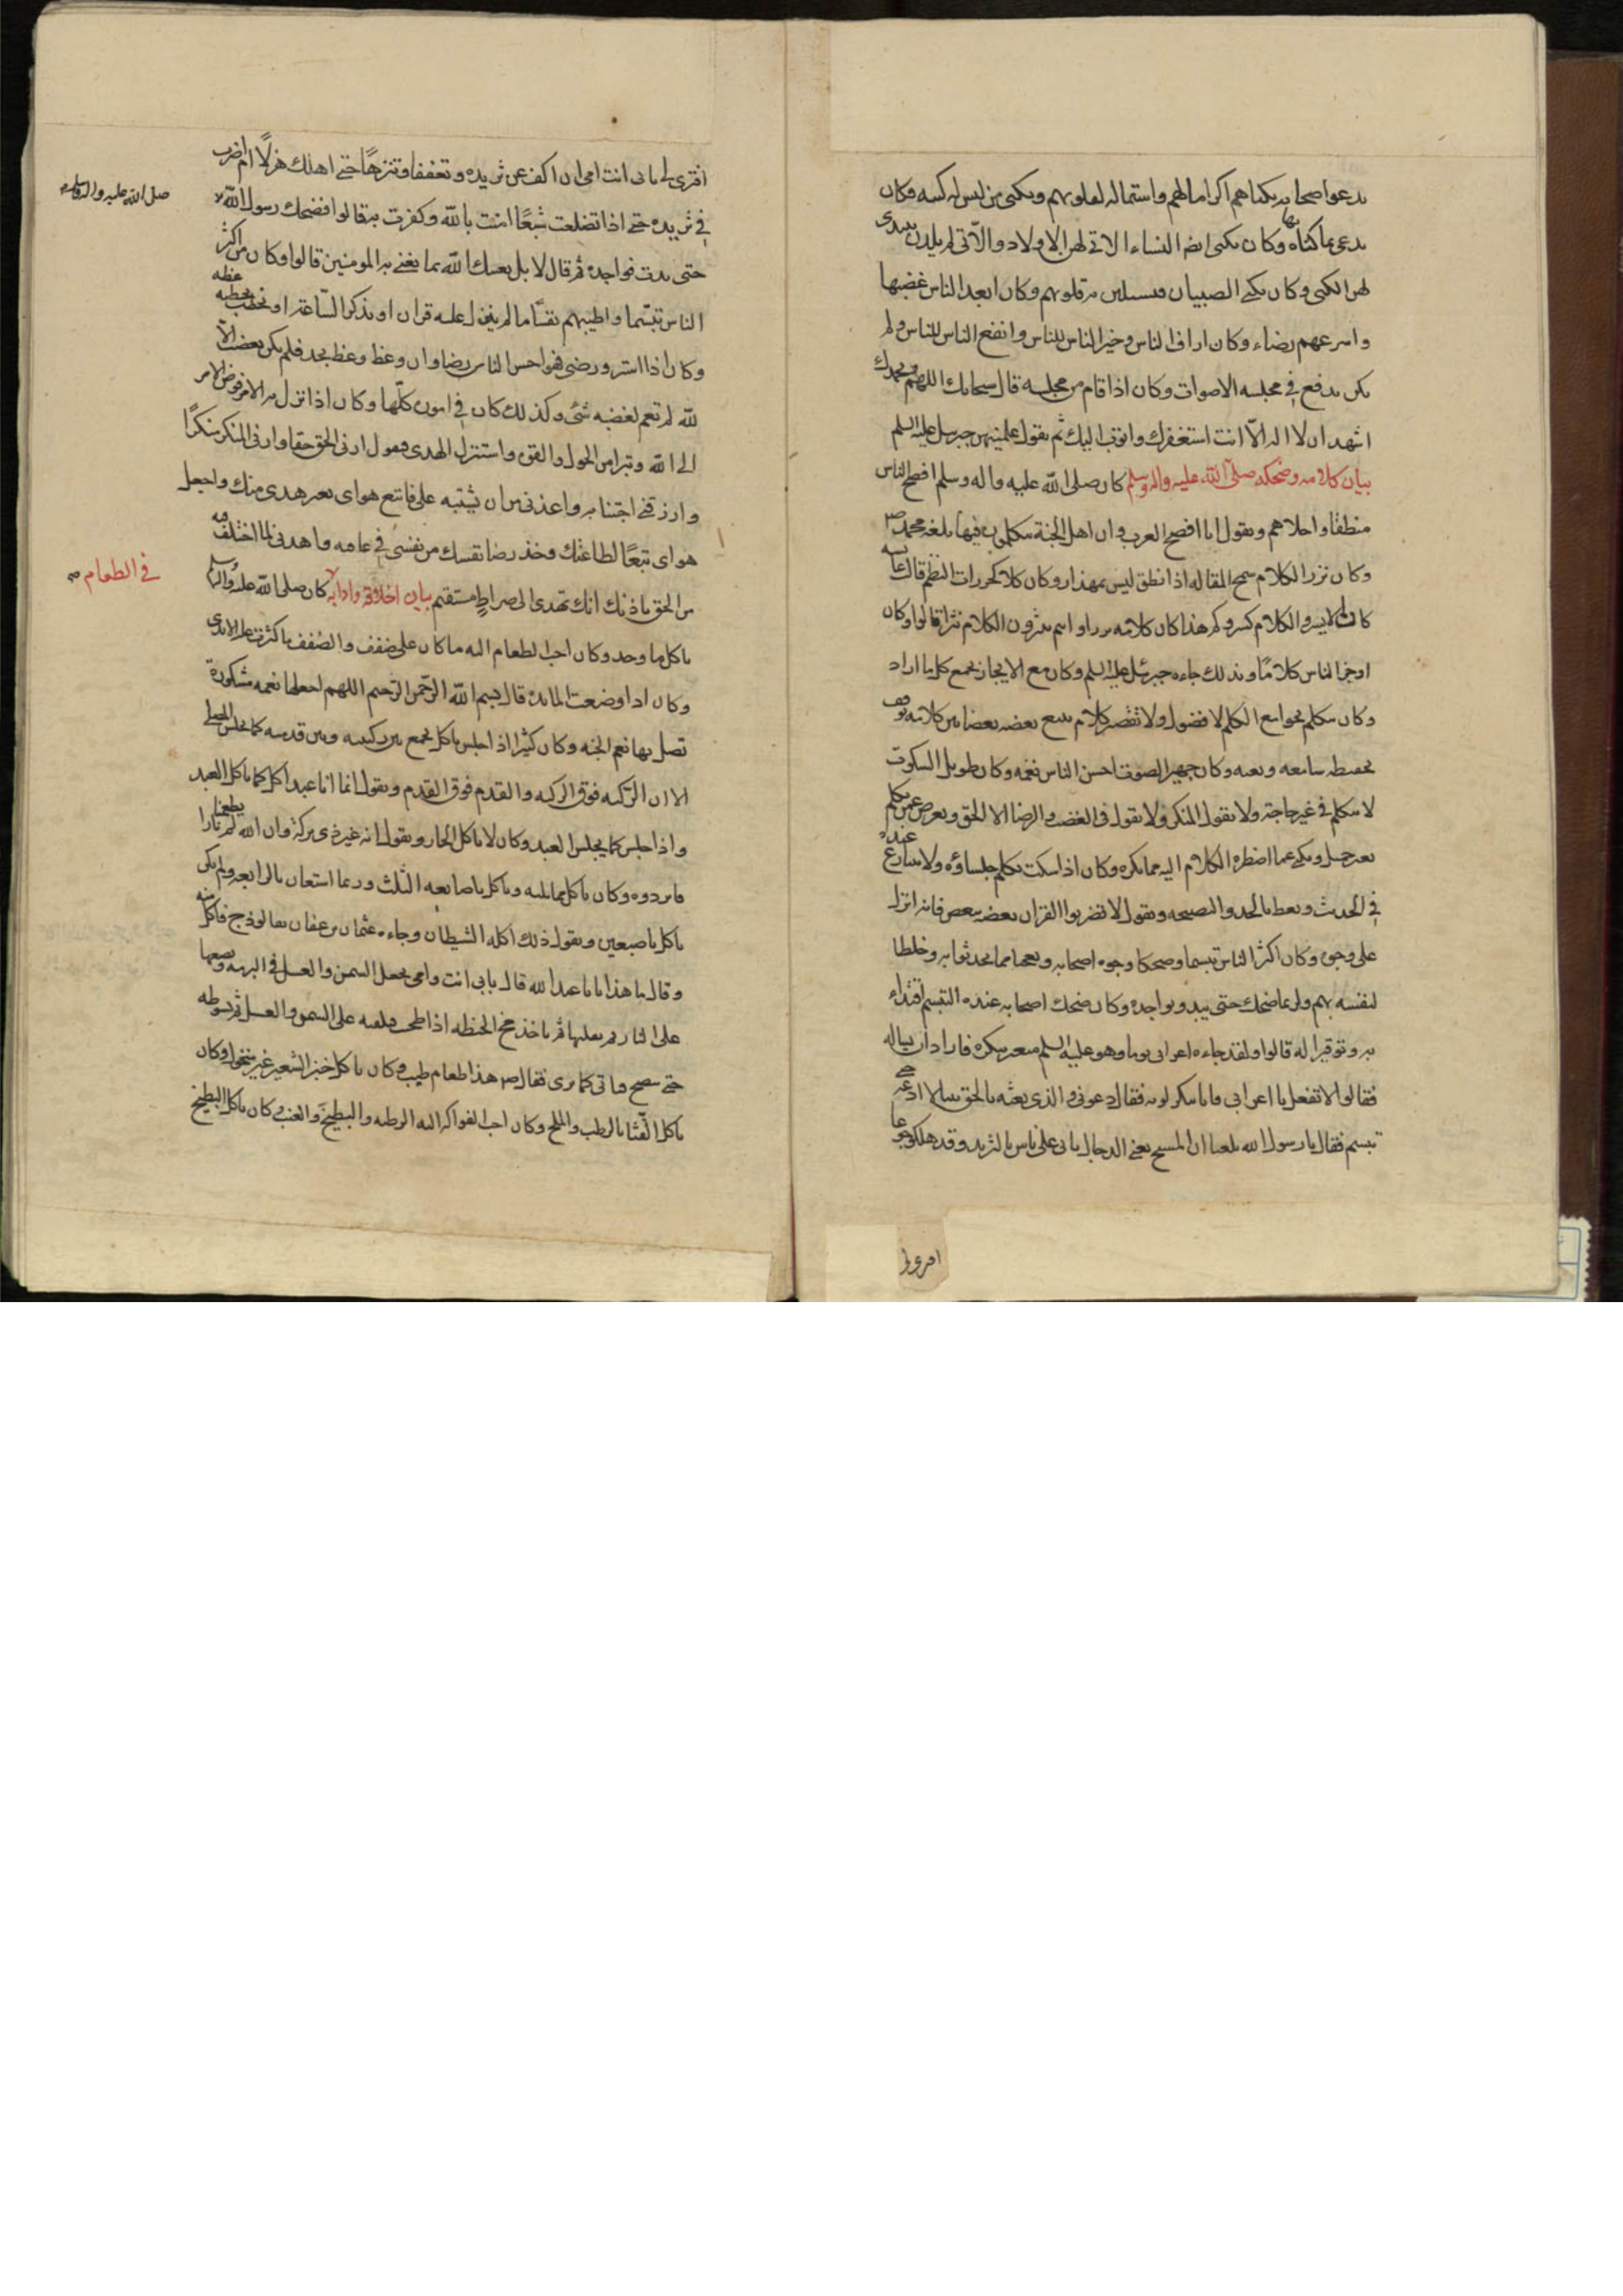 يدعو اصحابه بكناهم اكراما لهم واستماله لقلوبهم ويكنى من ليس له كنيه وكان
يدعى بما كناه بها وكان يكنى ايضا النساء الاتي لهن الاولاد والاتي لم يلدن يبتدى
لهن الكنى وكان يكنى الصبيان فيستلين به قلوبهم وكان ابعد الناس غضبها
واسرعهم رضاء وكان اراف الناس وخير الناس للناس وانفع الناس للناس ولم
يكن يدفع في مجلسه الاصوات وكان اذا قام من مجلسه قال سبحانك اللهم وبحمدك
اشهد ان لا اله الا انت استغفرك واتوب اليك ثم يقول علمنيهن جبرئيل عليه السلم
بيان كلامه وضحكه صلى الله عليه واله وسلم كان صلى الله عليه واله وسلم افصح الناس
منطقا واحلاهم ويقول انا افصح العرب وان اهل الجنة يتكلمون فيها بلغة محمد ص
وكان نزر الكلام سمح المقاله اذا نطق ليس بمهذار وكان كلامه كخرزات النظم قالت عايشه
كان لا يسرد الكلام كسردكم هذا كان كلامه نزرا وانتم تنثرون الكلام نثرا قالوا وكان
اوجز الناس كلامًا وبذلك جاءه جبرئيل عليه السلم وكان مع الايجاز يجمع كل ما اراد
وكان يتكلم بجوامع الكلم لا فضول ولا تقصير كلام يتبع بعضه بعضا بين كلامه توقف
يحفظه سامعه ويعيه وكان جهير الصوت احسن الناس نغمه وكان طويل السكوت
لا يتكلم في غير حاجة ولا يقول المنكر ولا يقول في الغضب والرضا الا الحق ويعرض عمن تكلم
بغير جميل ويكنى عما اضطره الكلام اليه مما يكره وكان اذا سكت تكلم جلساؤه ولا يتنازع عنده
في الحديث ويعظ بالجد والنصيحه ويقول لا تضربوا القران بعضه ببعض فانه انزل
على وجوه وكان اكثر الناس تبسما وضحكا وجوه اصحابه وتعجبا مما تحدثوا به وخلطا
لنفسه بهم ولربما ضحك حتى يبدو نواجده وكان ضحك اصحابه عنده التبسم اقتداء
به وتوقيرا له قالوا ولقد جاءه اعرابى يوما وهو عليه السلم متغير ينكره فاراد ان يساله
فقالوا لا تفعل يا اعرابى فانا ننكر لونه فقال دعونى والذى بعثه بالحق نبيا لا ادعه حتى
تبسم فقال يا رسول الله بلغنا ان المسيح يعنى الدجال ياتى على الناس بالثريد وقد هلكوا جوعا
افترى لى
افترى لى بابى انت امى ان اكف عن ثريده وتعففا وتنزهًا حتى اهلك هزلًا ام اضرب
في ثريده حتى اذا تضلعت شبعًا امنت بالله وكفرت به قالوا فضحك رسول الله
صلى الله عليه واله وسلم
حتى بدت نواجده ثم قال لا بل يغنيك الله بما يغنى به المومنين قالوا وكان من اكثر
الناس تبسّما واطيبهم نفسّا ما لم ينزل عليه قران او يذكر الساعة او يخطب بخطبه عظه
وكان اذا استر ورضى فهو احسن الناس رضا وان وعظ وعظ بجد فلم يكن يغضب الا
لله لم يقم لغضبه شئ وكذلك كان في اموره كلها وكان اذا نزل به الامر فوض الامر
الى الله وتبرا من الحول والقوه واستنزل الهدى فيقول ارنى الحق حقا وارنى المنكر منكرًا
وارزقنى اجتنابه واعذنى من ان يشتبه على فاتبع هواى بغير هدى منك واجعل
هواى تبعًا لطاعتك وخذ رضا نفسك من نفسى في عافيه واهدنى لما اختلف فيه
من الحق باذنك انك تهدى الى صراط مستقيم بيان اخلاقه وادابه كان صلى الله عليه واله وسلم
في الطعام
ياكل ما وجد وكان احب الطعام اليه ما كان على ضفف والضفف ما كثرت عليه الايدى
وكان اذا وضعت المائده قال بسم الله الرحمن الرحيم اللهم اجعلها نعمه مشكورة
تصل بها نعم الجنه وكان كثيرا اذا جلس ياكل يجمع بين ركبتيه وبين قدميه كما يجلس المصلى
الا ان الركبه فوق الركبه والقدم فوق القدم ويقول انما انا عبد اكل كما ياكل العبد
واذا جلس كما يجلس العبد وكان لا ياكل الحار ويقول انه غير ذى بركة وان الله لم يطعمنا نارا
فابردوه وكان ياكل مما يليه وياكل باصابعه الثلث وربما استعان بالرابعه ولم يكن
ياكل باصبعين ويقول ذلك اكله الشيطان وجاءه عثمان بن عفان بفالوذج فاكل منه
وقال ما هذا يا با عبد الله قال بابى انت وامى نجعل السمن والعسل في البرمه ونضعها
على النار ثم نغليها ثم ناخذ مخ الحنطه اذا طحنت فنلقيه على السمن والعسل ثم نسوطه
حتى ينضج فياتى كما ترى فقال ص هذا طعام طيب وكان ياكل خبز الشعير غير منخول وكان
ياكل القثا بالرطب والملح وكان احب الفواكه اليه الرطبه والبطيخ والعنب وكان ياكل البطيخ